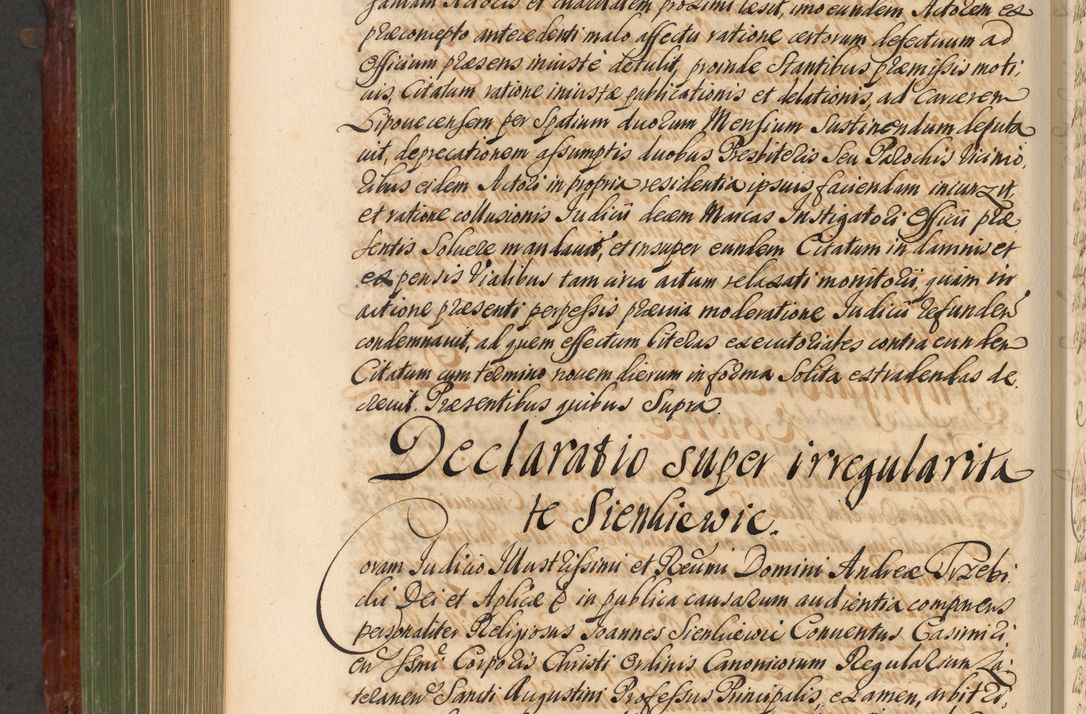 famam Actoris et charitatem proximi læsit, imo eundem Actorem ex
præconcepto antecedenti malo affectu ratione certorum defectuum ad
Officium præsens iniustè detulit, proinde Stantibus præmissis moti,
uis, Citatum ratione iniustæ publicationis et delationis, ad Carcerem
Lipouecensem per Spatium duorum Mensium Sustinendum deputa
uit, deprecationem assumptis duobus Presbiteris Seu Parochis Vicinio,
ribus eidem Actori in propria residentia ipsius faciendam iniunxit
et ratione collusionis Iudicii decem Marcas Instigatori Officii præ
sentis Soluere mandauit, et insuper eundem Citatum in damnis et
expensis Vialibus tam circa actum relaxati monitorii, quam in
actione præsenti perpessis præuia moderatione Iudicii refunden̄
condemnauit, ad quem effectum literas executoriales contra eunden
Citatum cum termino nouem dierum in forma Solita extradendas de
creuit. Præsentibus quibus Supra.
Declaratio super irregularita
te Sienkiewic.
Coram Iudicio Illustrissimi et Reūmi Domini Andreæ Trzebi
cki Dei et Aplicæ S in publica causarum audientia comparens
personaliter Religiosus Ioannes Sienkiewic Conuentus Casimiri
en̄ Ssmi Corporis Christi Ordinis Canonicorum Regularium La,
teranen̄ Sancti Augustini Professus Principalis, examen, arbitri,